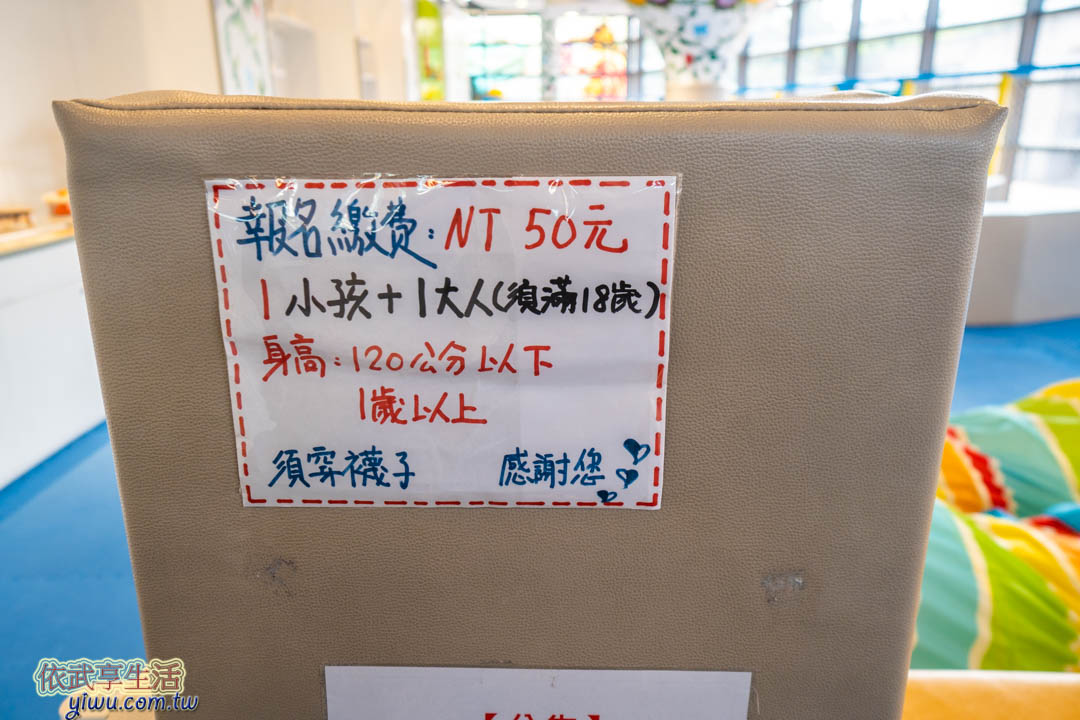 報名繳費:NT 50元
1小孩+1大人(須滿18歲)
身高:120公分以下
1歲以上
須穿襪子 感謝您
【公告】
依武享生活
yiwu.com.tw